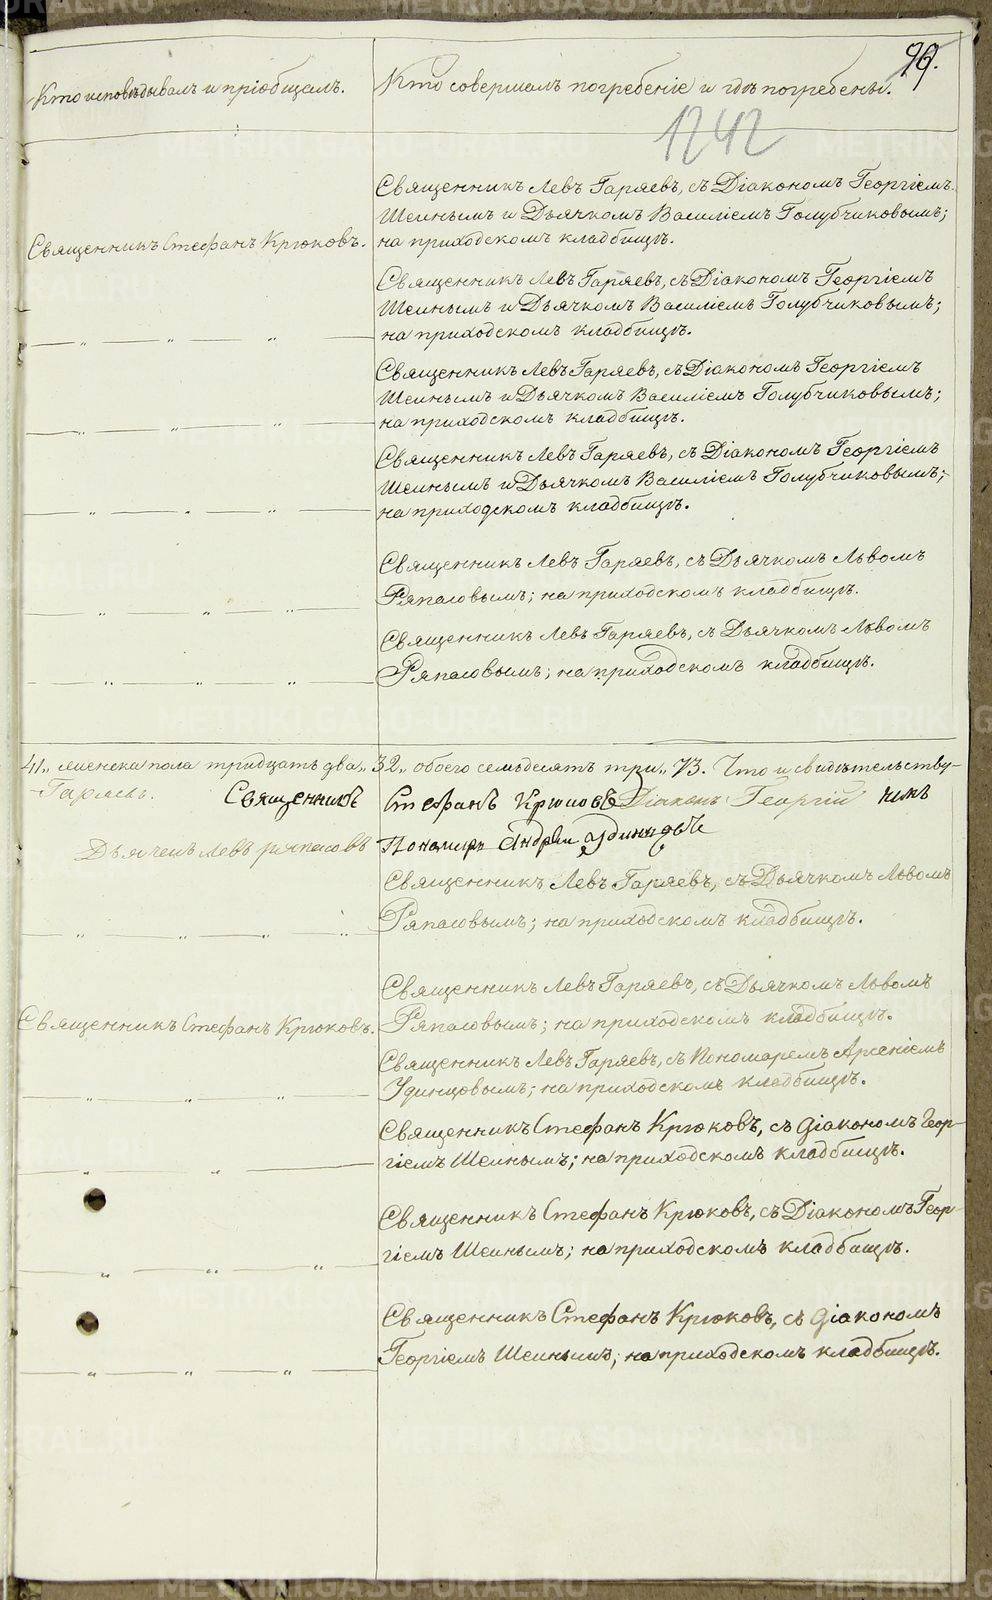 99.
Кто исповѣдывалъ и пріобщалъ.
Кто совершалъ погребеніе и гдѣ погребены.
1242
Священникъ Левъ Гаряевъ, съ Діакономъ Георгіемъ
Шеинымъ и Дьячкомъ Василіемъ Голубчиковымъ;
Священникъ Стефанъ Крюковъ.
на приходскомъ кладбищѣ.
Священникъ Левъ Гаряевъ, съ Діакономъ Георгіемъ
Шеинымъ и Дьячкомъ Василіемъ Голубчиковымъ;
— „ — „ — „ —
на приходскомъ кладбищѣ.
Священникъ Левъ Гаряевъ, съ Діакономъ Георгіемъ
Шеинымъ и Дьячкомъ Василіемъ Голубчиковымъ;
— „ — „ — „ —
на приходскомъ кладбищѣ.
Священникъ Левъ Гаряевъ, съ Діакономъ Георгіемъ
Шеинымъ и Дьячкомъ Василіемъ Голубчиковымъ;
— „ — „ — „ —
на приходскомъ кладбищѣ.
Священникъ Левъ Гаряевъ, съ Дьячкомъ Львомъ
— „ — „ — „ —
Ряпасовымъ; на приходскомъ кладбищѣ.
Священникъ Левъ Гаряевъ, съ Дьячкомъ Львомъ
— „ — „ — „ —
Ряпасовымъ; на приходскомъ кладбищѣ.
41„ женска пола тридцать два„ 32„ обоего семьдесятъ три„ 73. Что и свидѣтельству-
Гаряевъ. Священникъ Стефанъ Крюковъ Діаконъ Георгій
Дьячекъ Левъ Ряпасовъ Пономарь
Священникъ Левъ Гаряевъ, съ Дьячкомъ Львомъ
— „ — „ — „ — „
Ряпасовымъ; на приходскомъ кладбищѣ.
Священникъ Левъ Гаряевъ, съ Дьячкомъ Львомъ
Священникъ Стефанъ Крюковъ.
Ряпасовымъ; на приходскомъ кладбищѣ.
Священникъ Левъ Гаряевъ, съ Пономаремъ Арсеніемъ
— „ — „ — „ —
Удинцовымъ; на приходскомъ кладбищѣ.
Священникъ Стефанъ Крюковъ, съ Діакономъ Геор-
— „ — „ —
гіемъ Шеинымъ; на приходскомъ кладбищѣ.
Священникъ Стефанъ Крюковъ, съ Діакономъ Геор-
— „ — „ — „ —
гіемъ Шеинымъ; на приходскомъ кладбищѣ.
Священникъ Стефанъ Крюковъ, съ Діакономъ
— „ — „ — „ —
Георгіемъ Шеинымъ; на приходскомъ кладбищѣ.
METRIKI.GASO-URAL.RU